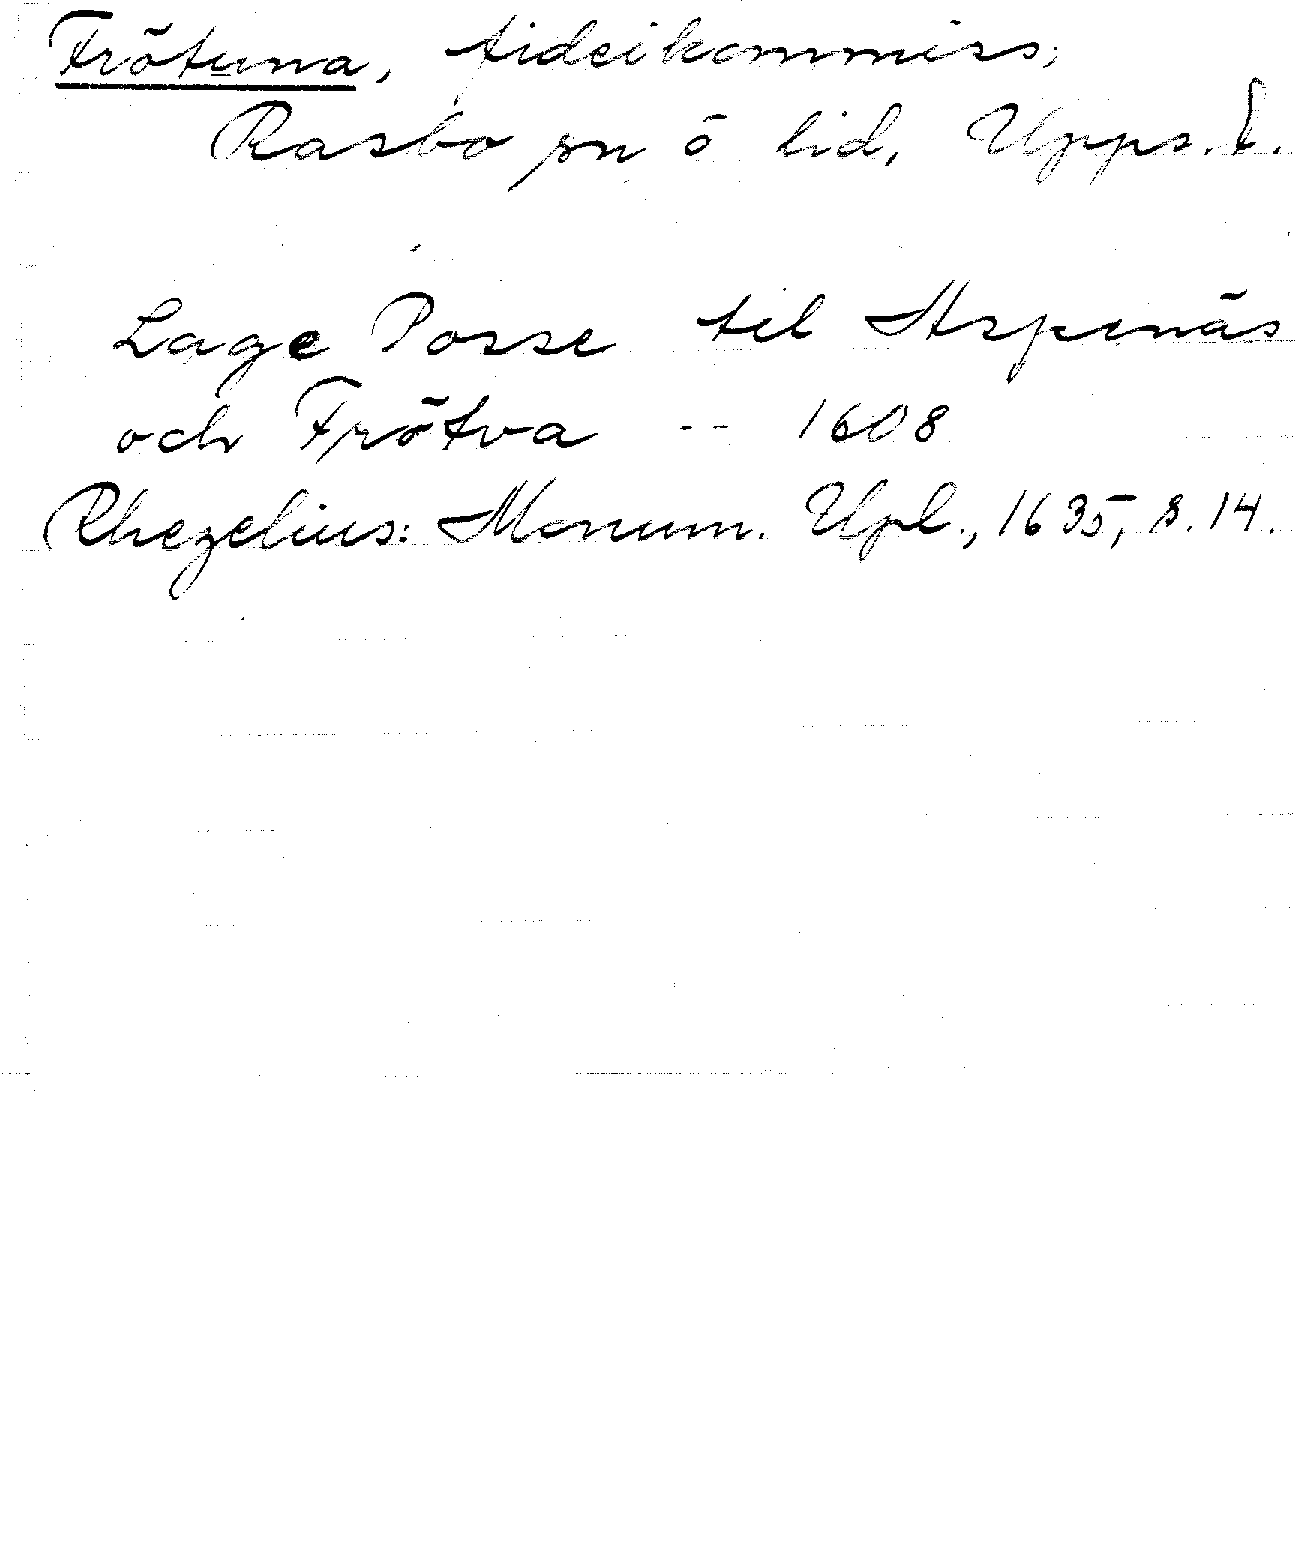 Frötuna, fideikommiss,
Rasbo sn o hd, Upps. l.
Lage Posse till Aspenäs
och Frötva -- 1608
Rhezelius: Monum. Upl., 1635, s. 14.